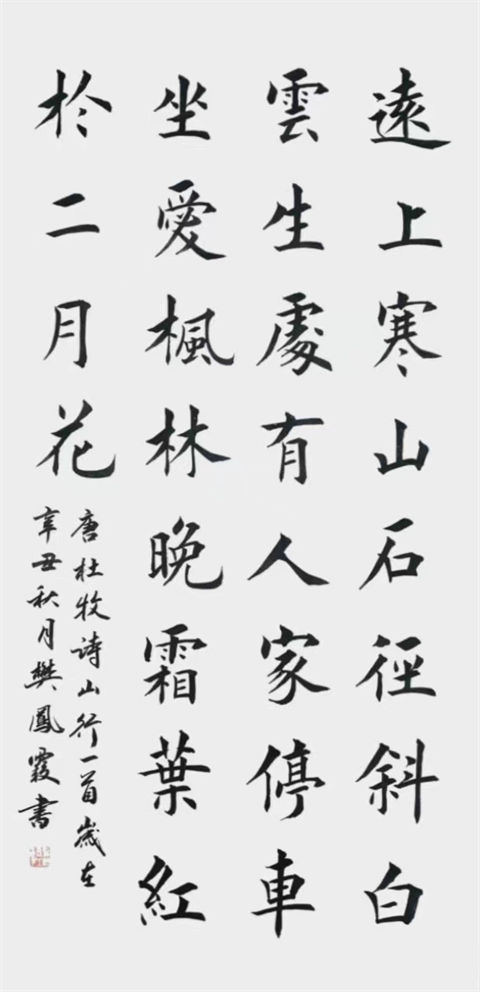 遠上寒山石徑斜白
雲生處有人家停車
坐愛楓林晚霜葉紅
於二月花
唐杜牧诗山行一首歲在
辛丑秋月樊鳳霞書